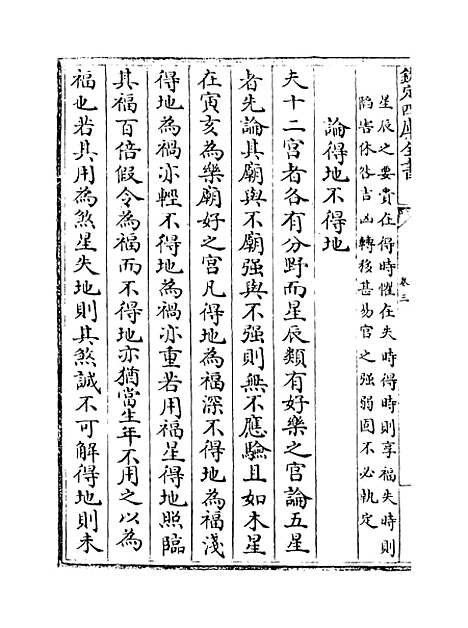 欽定四庫全書
卷三
星辰之要貴在得時懼在失時得時則享福失時則
蹈咎休咎吉凶轉移甚易宫之强弱固不必執定
論得地不得地
夫十二宫者各有分野而星辰類有好樂之宫論五星
者先論其廟與不廟强與不强則無不應驗且如木星
在寅亥為樂廟好之宫凡得地為福深不得地為福淺
得地為禍亦輕不得地為禍亦重若用福星得地照臨
其福百倍假令為福而不得地亦猶當生年不用之以為
福也若其用為煞星失地則其煞誠不可解得地則未